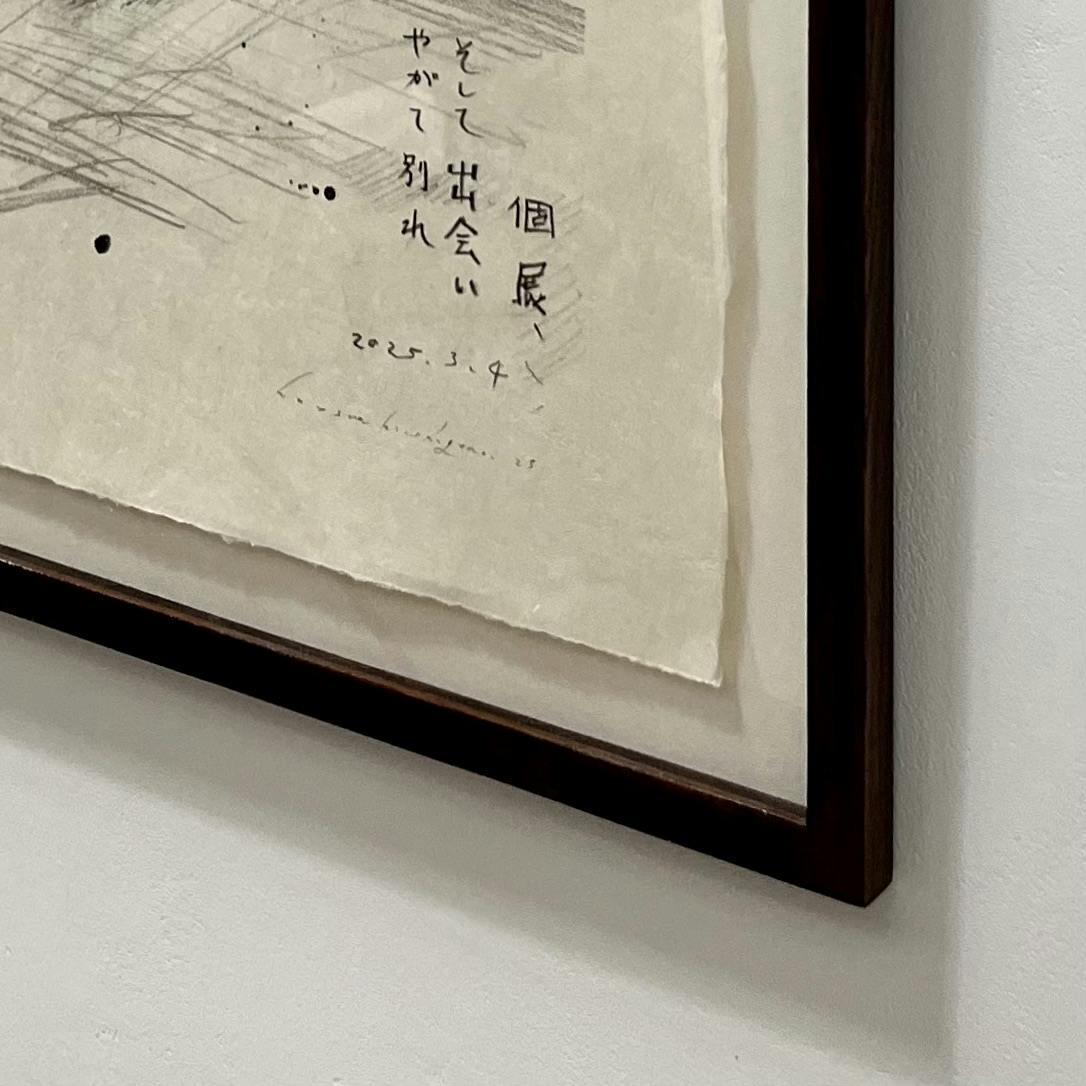 個展、
そして出会い
やがて別れ
2025.3.4